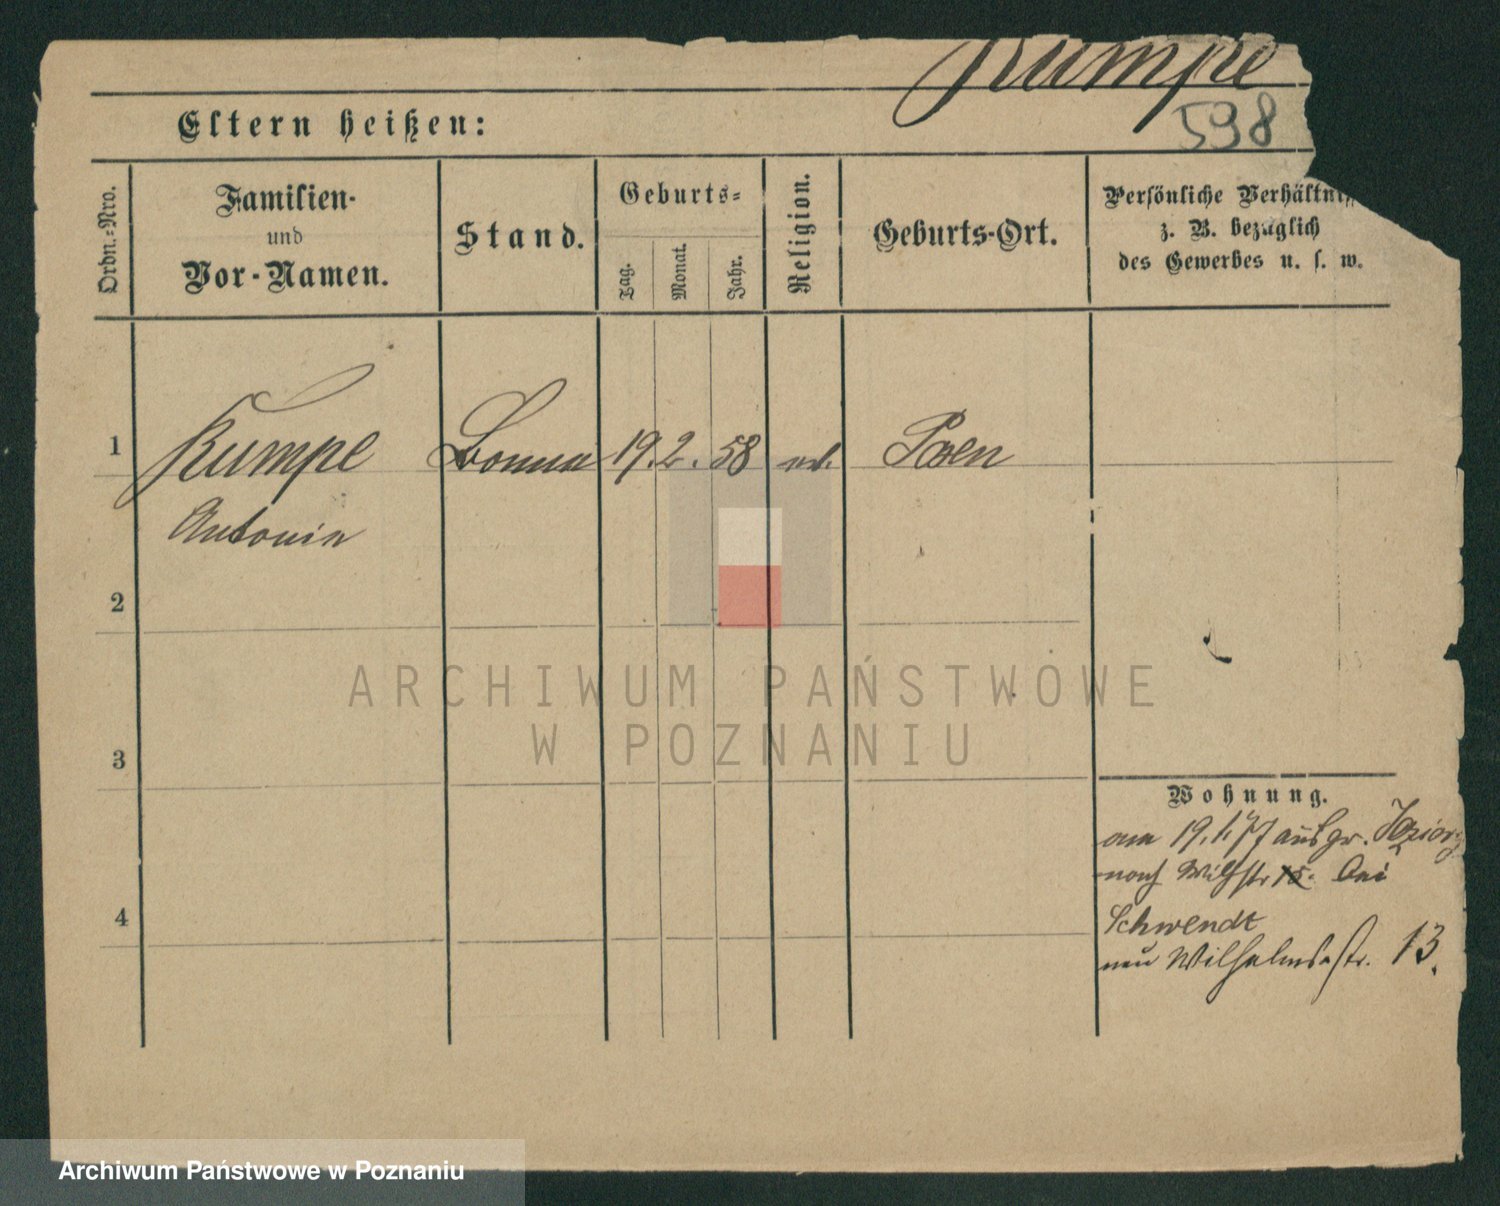 Kumpe
598
Eltern heißen:
Ordn.-Nro.
Familien-
und
Vor-Namen.
Stand.
Geburts-
Tag.
Monat.
Jahr.
Religion.
Geburts-Ort.
Persönliche Verhältni
z. B. bezüglich
des Gewerbes u. s. w.
1
Kumpe
Bonna
19. 2. 58
Posen
Antonin
2
3
4
Wohnung.
am 19.1.77 aus gr.
nach Wilhstr 15. bei
Schwendt
neu Wilhelmsstr. 13.
ARCHIWUM PAŃSTWOWE
W POZNANIU
Archiwum Państwowe w Poznaniu